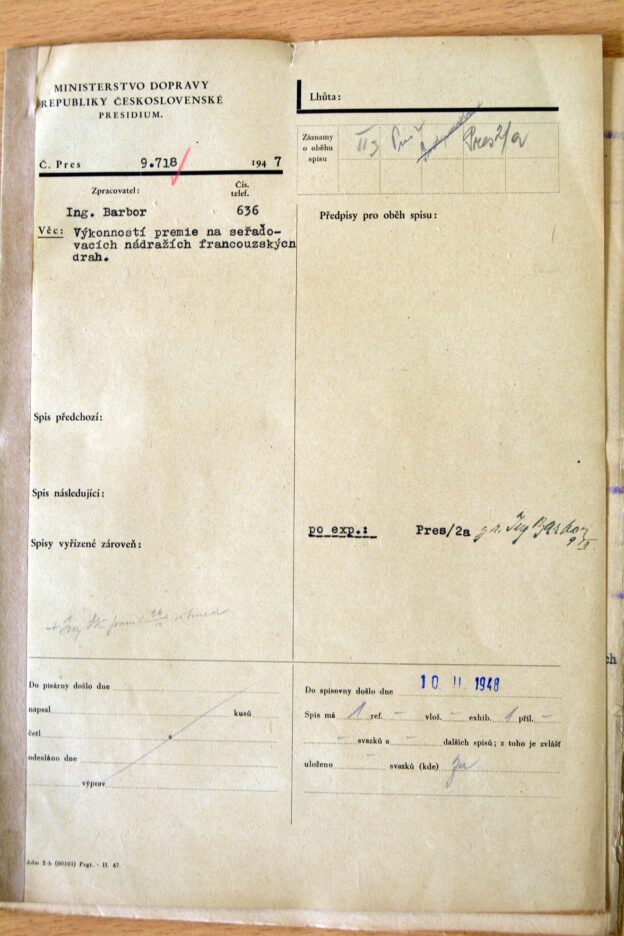 MINISTERSTVO DOPRAVY
REPUBLIKY ČESKOSLOVENSKÉ
PRESIDIUM.
Č. Pres 9.718/ 1947
Zpracovatel:
Čís.
telef.
Ing. Barbor 636
Věc: Výkonností premie na seřaďo-
vacích nádražích francouzských
drah.
Spis předchozí:
Spis následující:
Spisy vyřízené zároveň:
Do písárny došlo dne
napsal kusů
četl
odesláno dne
výprav
Adm 2-b (00103) Prgt. - II. 47
Lhůta:
Záznamy
o oběhu
spisu
Pres 2/a
Předpisy pro oběh spisu:
po exp.: Pres/2a Ing Barbor
Do spisovny došlo dne 10 II 1948
Spis má 1 ref. – vlož. – exhib. 1 příl. –
– svazků a – dalších spisů; z toho je zvlášť
uloženo – svazků (kde)
ch